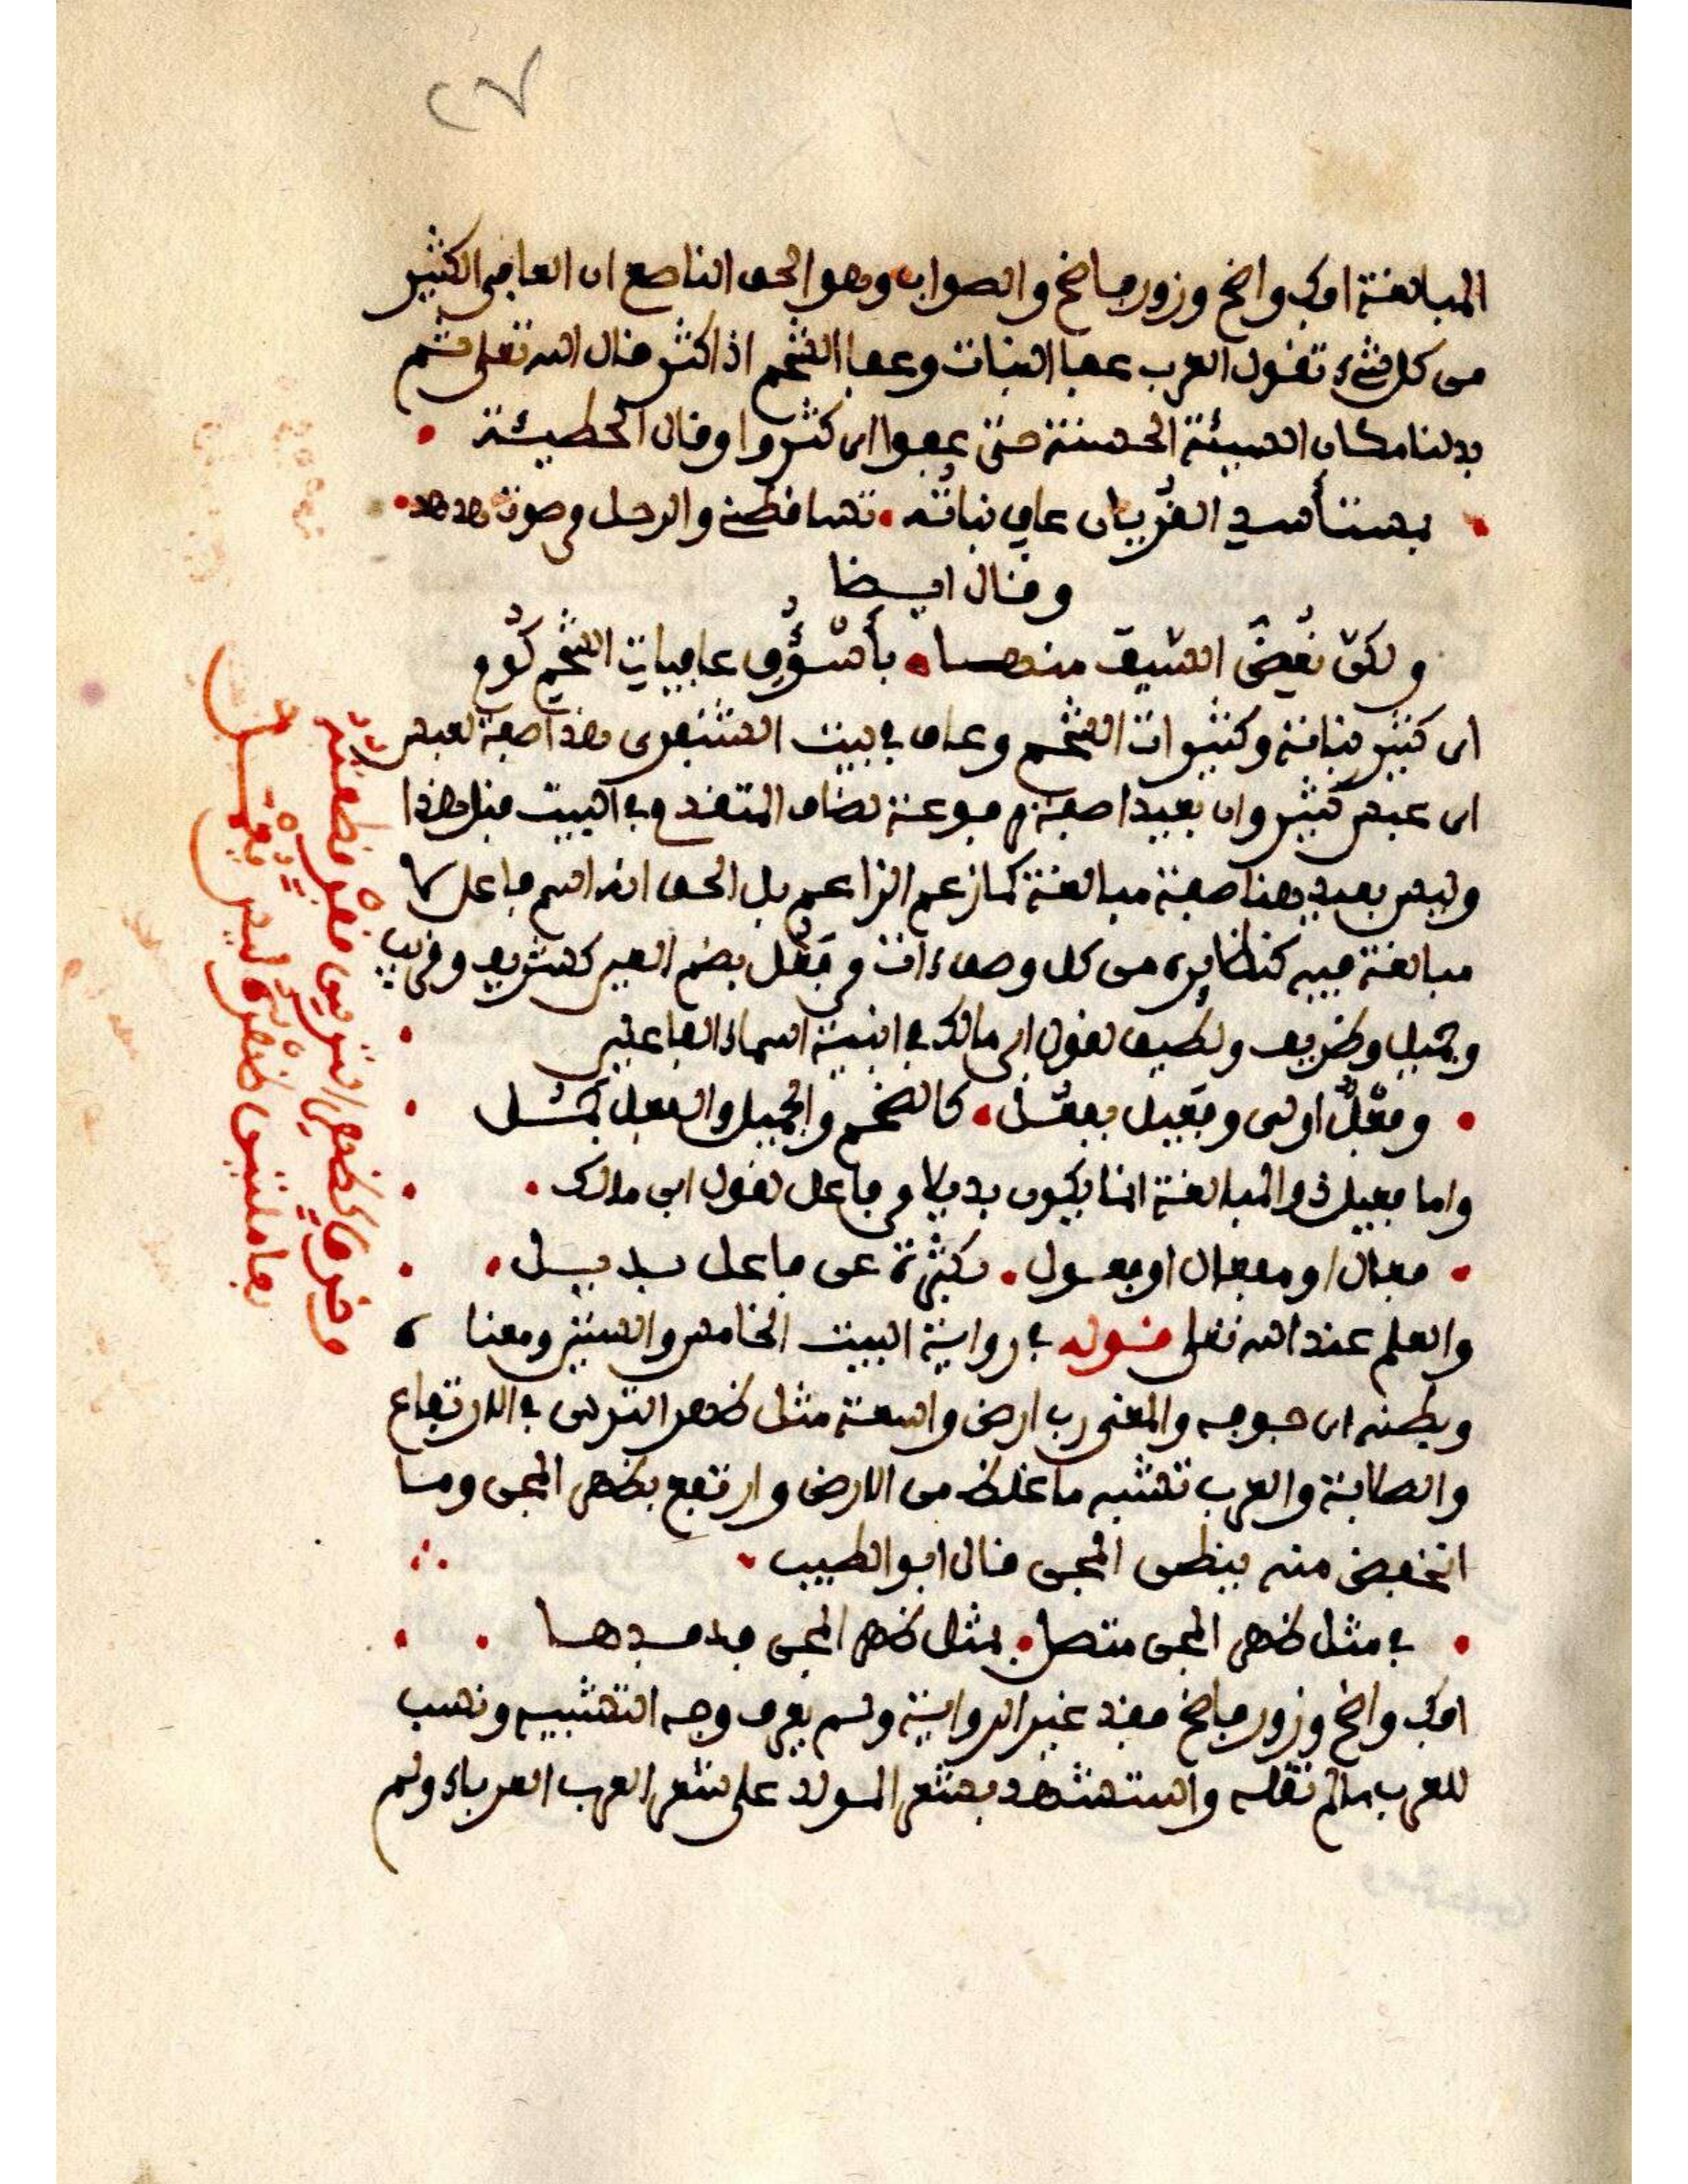 ٢٧
المبالغة افك واضح وزور فاضح والصواب وهو الحق الناصع ان العافى الكثير
من كل شىء تقول العرب عفا النبات وعفا الشحم اذا كثر قال الله تعلى ثم
بدلنا مكان السيئة الحسنة حتى عفوا اى كثروا وقال الحطيئة
بمستأسد القريان عاف نباته تساقطنى والرحل من صوت هدهد
وقال ايضا
ولكن نعض السيف منها بأسوق عافيات الشحم كوم
اى كثير نباته وكثيرات الشحم وعاف فى بيت الشنفرى هذا صفة لعبس
اى عبس كثير وان بعيدا صفة مرفوعة لضاف المتقدم فى البيت قبل هذا
وليس بعيد هنا صفة مبالغة كما زعم الزاعم بل الحق انه اسم فاعل لا
مبالغة فيه كنظايره من كل وصف ءات من فعل بضم العين كشريف وقريب
وجميل وظريف ولطيف لقول ابن مالك فى ابنية اسماء الفاعلين
وفعل اولى وفعيل بفعل كالضخم والجميل والفعل جمل
واما فعيل ذو المبالغة انما يكون بديلا من فاعل لقول ابن مالك
فعال او مفعال او فعول بكثرة عن فاعل بديل
والعلم عند الله تعلى قوله فى رواية البيت الخامس والستين ومعناه
وبطنه اى جوفه والمعنى رب ارض واسعة مثل ظهر الترس فى الارتفاع
والصلابة والعرب تشبه ما غلظ من الارض وارتفع بظهر المجن وما
انخفض منه ببطن المجن قال ابو الطيب
فى مثل ظهر المجن متصل بمثل ظهر المجن فدفدها
افك واضح وزور فاضح فقد غير الرواية ولم يعرف وجه التشبيه ونسب
للعرب ما لم تقله واستشهد بشعر المولد على شعر العرب العرباء ولم
وخرق كظهر الترس قفر قطعته
بعاملتين ظهره ليس يعمل